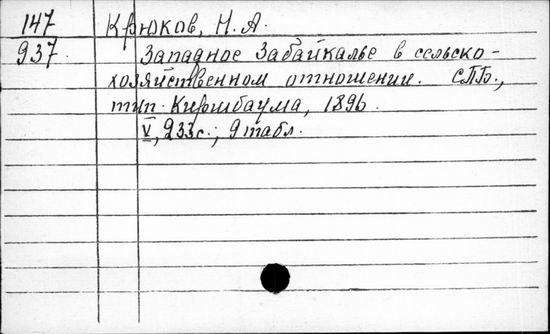 147 Крюков, Н. А.
937. Западное Забайкалье в сельско-
хозяйственном отношении. СПБ.,
тип. Киршбаума, 1896.
V, 233с.; 9 табл.